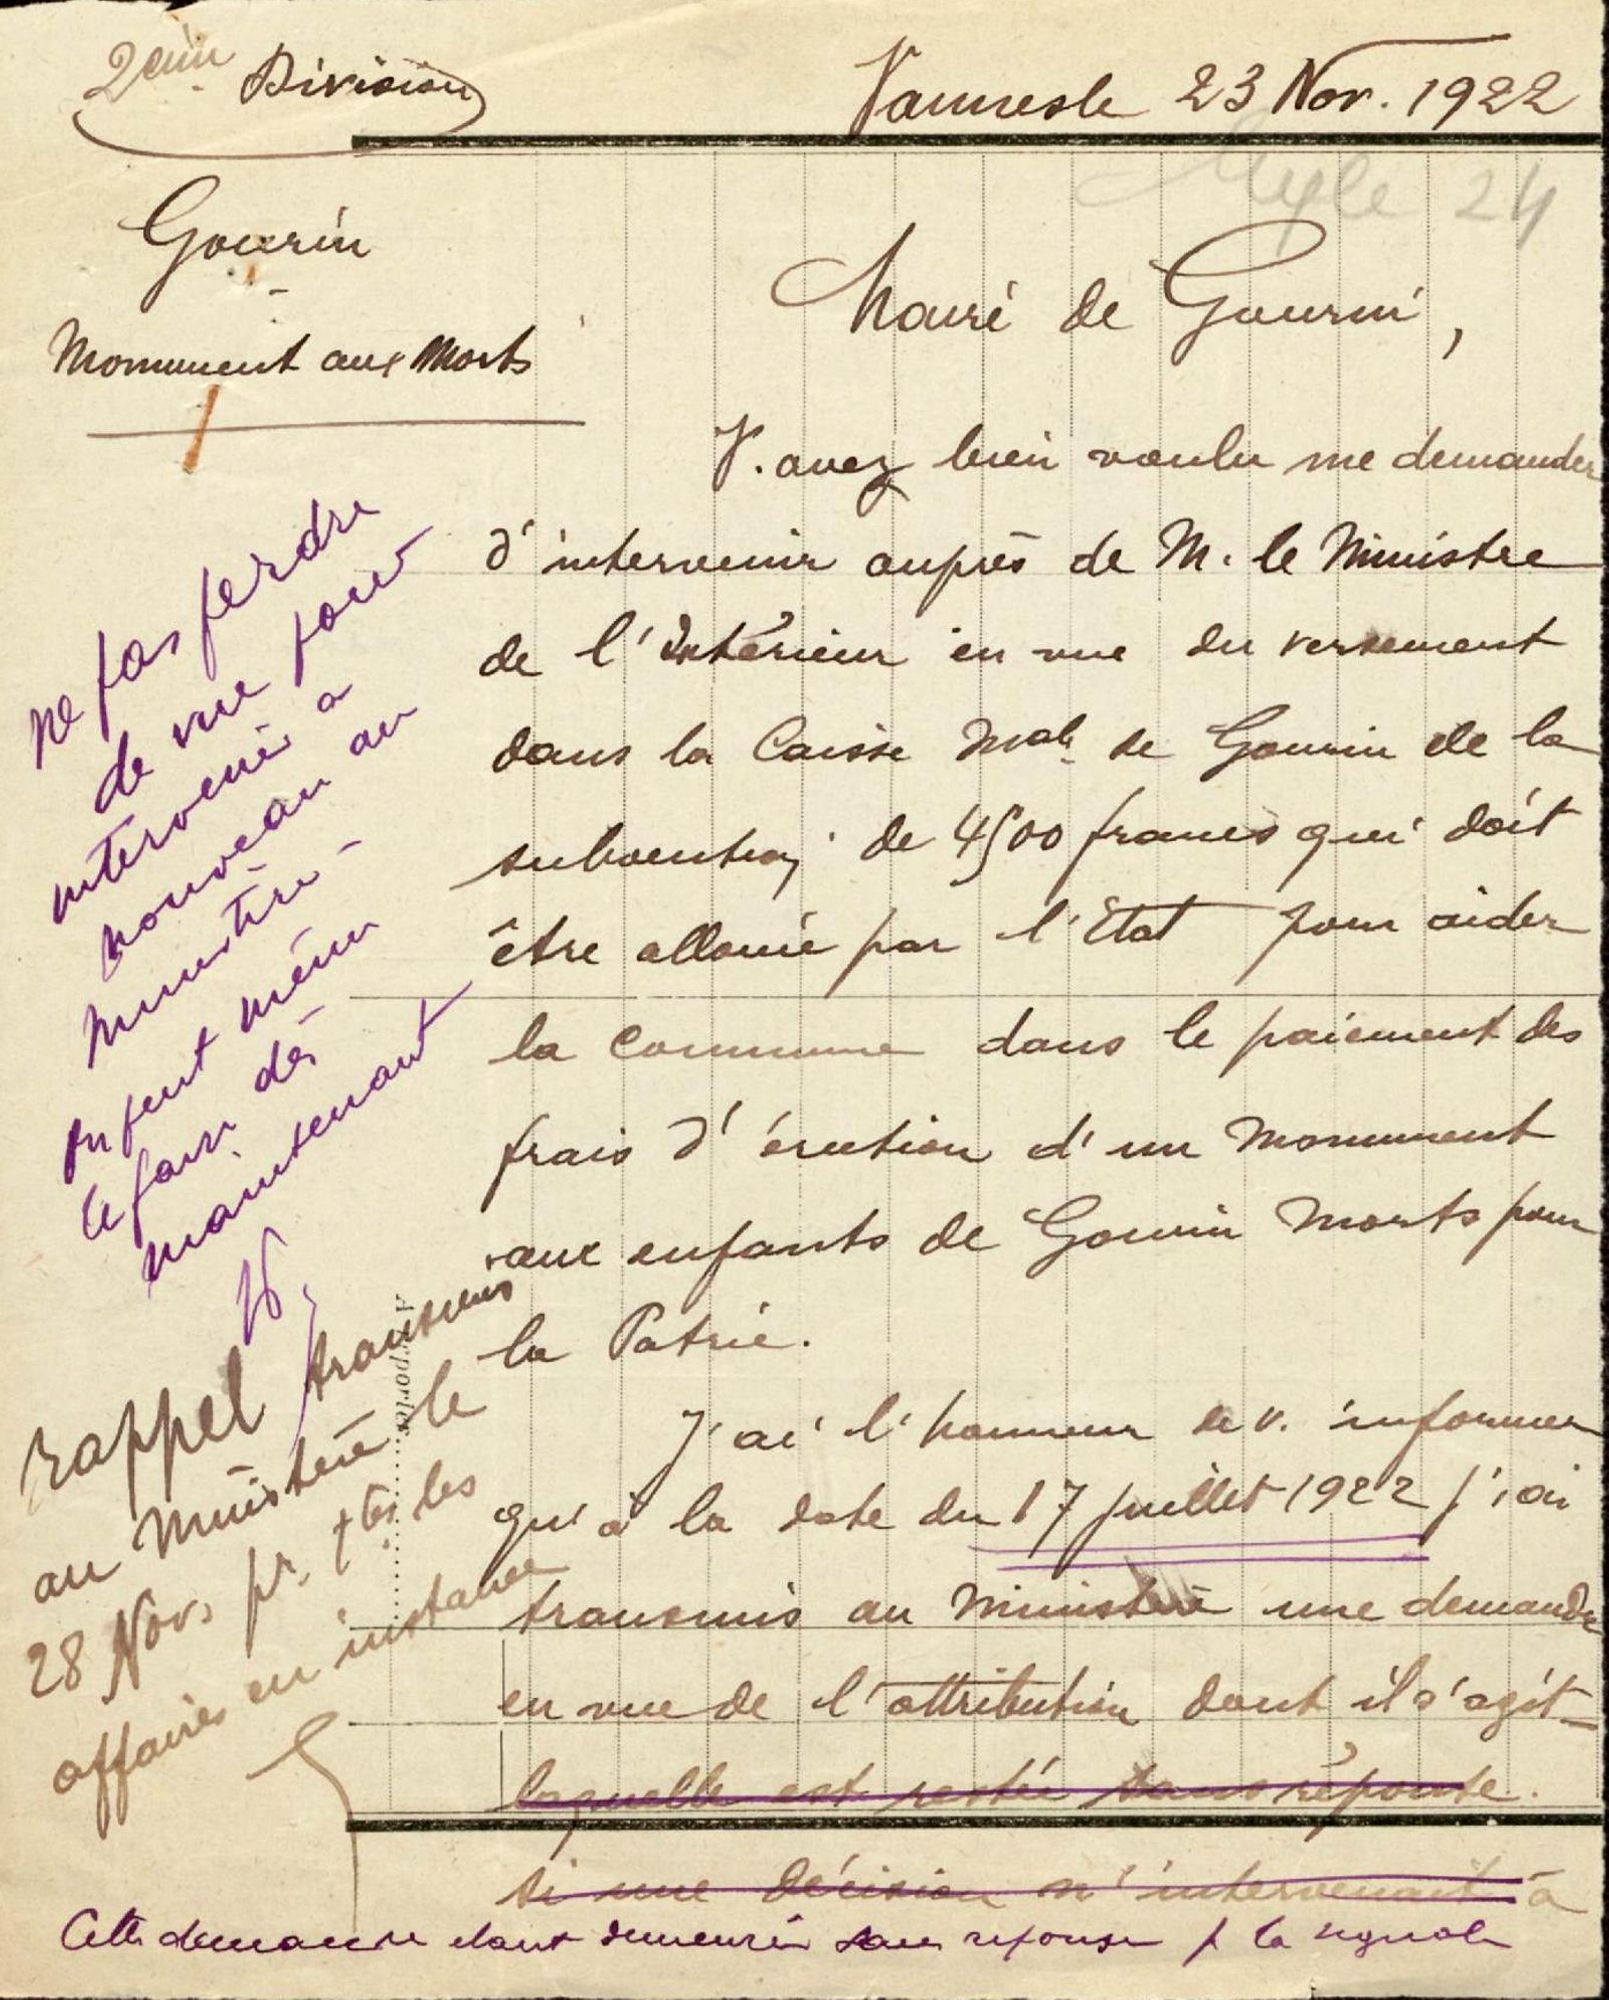 2ème Division
Vannes le 23 Nov. 1922
24
Gourin
Monument aux Morts
Maire de Gourin,
V. avez bien voulu me demander
d'intervenir auprès de M. le Ministre
de l'Intérieur en vue du versement
dans la Caisse Male de Gourin de la
subvention de 4500 francs qui doit
être allouée par l'Etat pour aider
la Commune dans le paiement des
frais d'érection d'un Monument
aux enfants de Gourin Morts pour
la Patrie.
J'ai l'honneur de v. informer
qu'à la date du 17 juillet 1922 j'ai
transmis au Ministère une demande
en vue de l'attribution dont il s'agit
laquelle est restée sans réponse.
si une décision n'intervenait à
Cette demande étant demeurée sans réponse je la signale
ne pas perdre
de vue pour
intervenir à
nouveau au
Ministère -
On peut même
le faire dès
maintenant
Rappel transmis
au Ministère le
28 Nov. pr. ttes les
affaires en instance